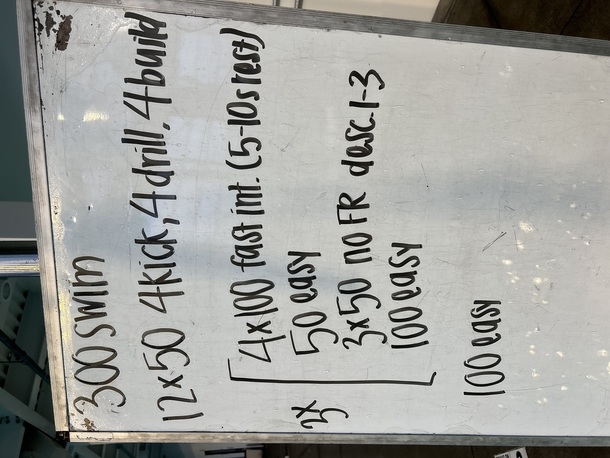 300 swim
12x50 4kick, 4drill, 4build
3x
4x100 fast int. (5-10s rest)
50 easy
3x50 no FR desc. 1-3
100 easy
100 easy